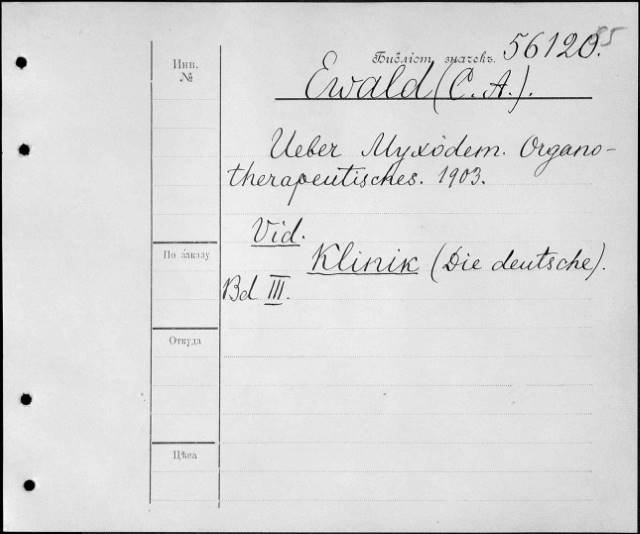 Инв.
№
Библіот. значекъ.
56120.
55
Ewald (C. A.).
Ueber Myxödem. Organo-
therapeutisches. 1903.
Vid.
Klinik (Die deutsche).
Bd III.
По заказу
Откуда
Цѣна